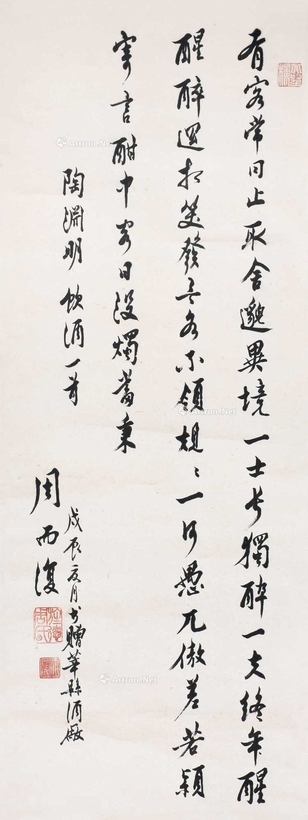 有客常同止取舍邈異境一士長獨醉一夫終年醒
醒醉還相笑發言各不領規〻一何愚兀傲差若穎
寄言酣中客日沒燭當秉
陶淵明飲酒一首
戊辰夏月书贈華縣酒廠
周而復